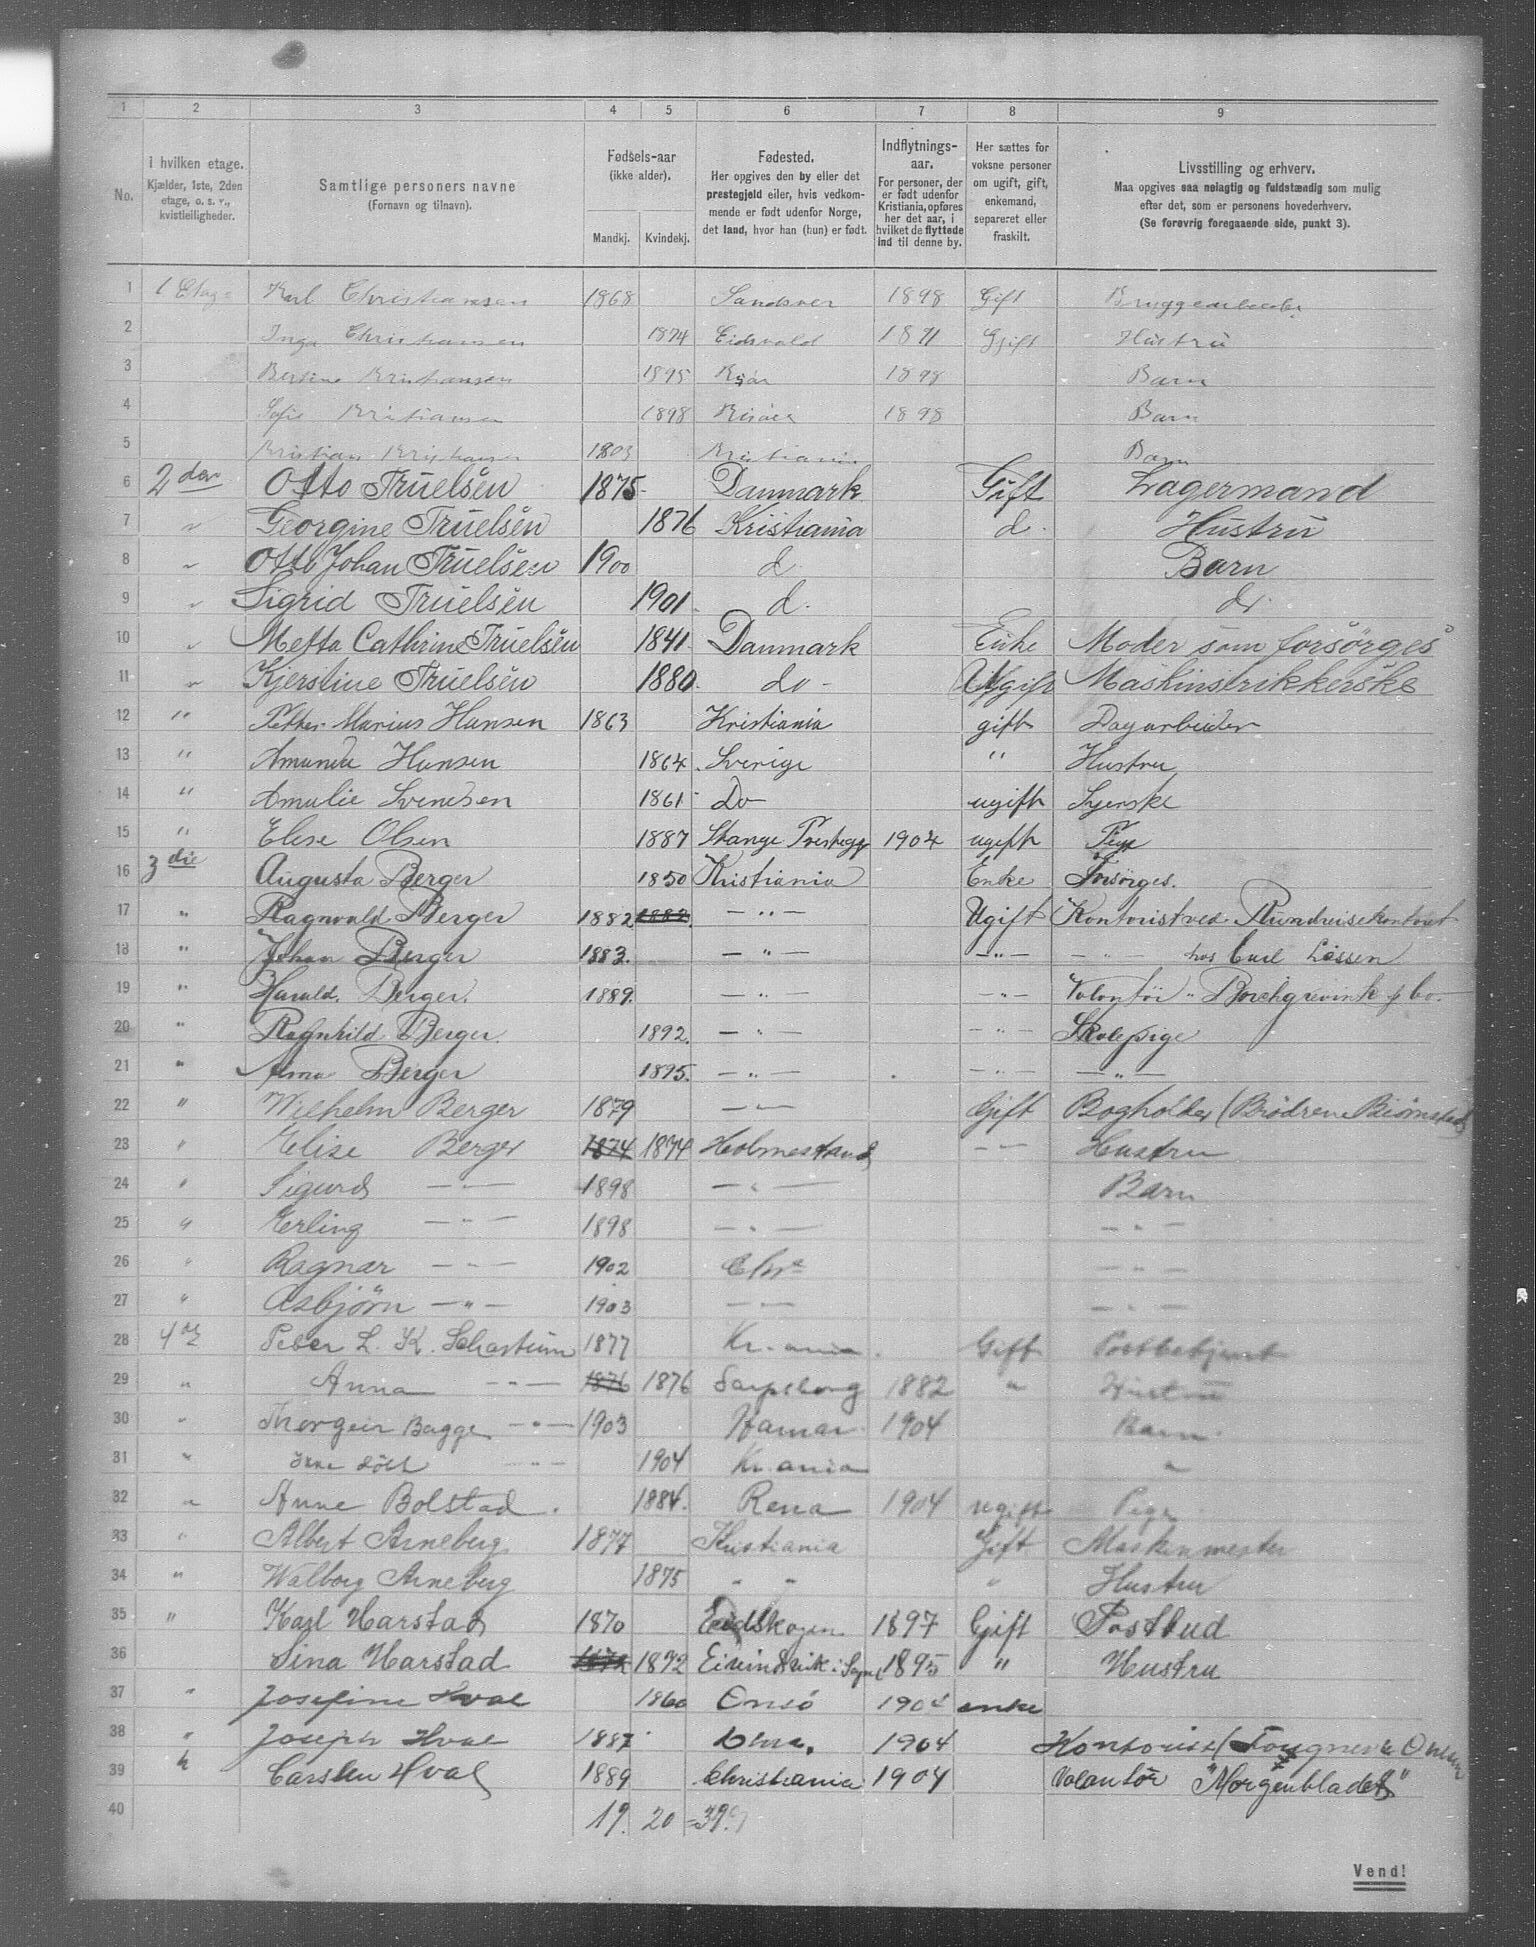 1 2 3 4 5 6 7 8 9
No. | I hvilken etage. Kjælder, 1ste, 2den etage, o. s. v., kvistleiligheder. | Samtlige personers navne (Fornavn og tilnavn). | Fødsels-aar (ikke alder). Mandkj. Kvindekj. | Fødested. Her opgives den by eller det prestegjeld eller, hvis vedkommende er født udenfor Norge, det land, hvor han (hun) er født. | Indflytnings-aar. For personer, der er født udenfor Kristiania, opføres her det aar, i hvilket de flyttede ind til denne by. | Her sættes for voksne personer om ugift, gift, enkemand, separeret eller fraskilt. | Livsstilling og erhverv. Maa opgives saa nøiagtig og fuldstændig som mulig efter det, som er personens hovederhverv. (Se forøvrig foregaaende side, punkt 3).
1 1 Etage Karl Christiansen 1868 Sandsver 1898 Gift Bryggearbeider
2 Inga Christiansen 1874 Eidsvold Gift Hustru
3 Bertine Kristiansen 1895 1898 Barn
4 Sofie Kristiansen 1898 1898 Barn
5 Kristian Kristiansen Kristiania Barn
6 2den Otto Truelsen 1875 Danmark Gift Lagermand
7 " Georgine Truelsen 1876 Kristiania d. Hustru
8 " Otto Johan Truelsen 1900 d. Barn
9 " Sigrid Truelsen 1901. d. do.
10 " Metta Cathrine Truelsen 1841 Danmark Enke Moder som forsörges
11 " Kjerstine Truelsen 1880. do - Ugift Maskinstrikkerske
12 " Petter Marius Hansen 1863 Kristiania gift Dagarbeider
13 " Amanda Hansen 1864. Sverige " Hustru
14 " Amalie Svendsen 1861 Do ugift Syerske
15 " Elise Olsen 1887 Stange Prestegj 1904 ugift Pige
16 3die Augusta Berger 1850 Kristiania Enke Forsørges.
17 " Ragnvald Berger 1882 1882 — " — Ugift Kontorist ved Rundreisekontoret
18 " Johan Berger 1883. — " — — " — — " — hos Carl Lassen
19 " Harald. Berger. 1889. — " — — " — Volontör " Borchgrevink & Co.
20 " Ragnhild Berger. 1892. — " — — " — Skolepige
21 " Alma Berger 1895. — " — — " — — " —
22 " Wilhelm Berger 1879 — " — Gift Bogholder (Brödrene Biörnstad)
23 " Elise Berger 1874 1874 Holmestrand — " — Hustru
24 " Sigurd — " — 1898 — " — Barn
25 " Erling — " — 1898 — " — — " —
26 " Ragnar — " — 1902 Chra — " —
27 " Asbjörn — " — 1903 — " — — " —
28 4de Peter L. K. Schartum 1877 Kr.ania. Gift Postbetjent
29 " Anna — " — 1876 1876 Sarpsborg 1882 " Hustru
30 " Thorgeir Bagge — " — 1903 Hamar 1904 Barn
31 " Ikke döbt — " — 1904 Kr.ania "
32 " Anne Bolstad. 1884. Rena 1904 ugift Pige
33 " Albert Arneberg 1877 Kristiania Gift Maskinmester
34 " Walborg Arneberg 1875 " " " Hustru
35 " Karl Harstad 1870 Eidskogen 1897 Gift Postbud
36 Sina Harstad 1872 1872 Eivindvik i Sogn 1895 " Hustru
37 " Josefine Hval 1860 Onsö 1904 enke
38 " Joseph Hval 1887 Chra. 1904 Kontorist
39 " Carsten Hval 1889 Christiania 1904 Volontör "Morgenbladet"
40 19. 20 = 39.
Vend!